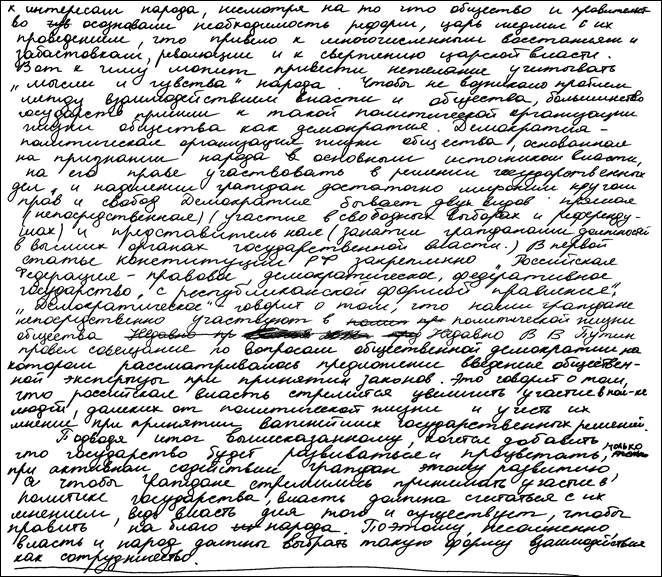 к интересам народа, несмотря на то что общество и правительст-
во осознавали необходимость реформ, царь медлил с их
проведением, что привело к многочисленным восстаниям и
забастовкам, революции и к свержению царской власти.
Вот к чему может привести нежелание учитывать
„мысли и чувства" народа. Чтобы не возникало проблем
между взаимодействием власти и общества, большинство
государств пришли к такой политической организации
жизни общества как демократия. Демократия -
политическая организация жизни общества, основанная
на признании народа основным источником власти,
на его праве участвовать в решении государственных
дел, и наделении граждан достаточно широким кругом
прав и свобод. Демократия бывает двух видов: прямая
(непосредственная) (участие в свободных выборах и референду-
мах) и представительная (занятии гражданами должностей
в высших органах государственной власти.) В первой
статье конституции РФ закреплено „Российская
Федерация - правовое демократическое, федеративное
государство, с республиканской формой правления".
„Демократическое" говорит о том, что наши граждане
непосредственно участвуют в политической жизни
общества Недавно В В Путин
провел совещание по вопросам общественной демократии на
котором рассматривалось предложение введение обществен-
ной экспертизы при принятии законов. Это говорит о том,
что российская власть стремится увеличить участие в пол-ке
людей, далеких от политической жизни и учесть их
мнение при принятии важнейших государственных решений.
Подводя итог вышесказанному, хочется добавить
что государство будет развиваться и процветать, только
при активном содействии граждан этому развитию
А чтобы граждане стремились принимать участие в
политике государства, власть должна считаться с их
мнением, ведь власть для того и существует, чтобы
править на благо народа. Поэтому, несомненно,
власть и народ должны выбрать такую форму взаимодействия
как сотрудничество.